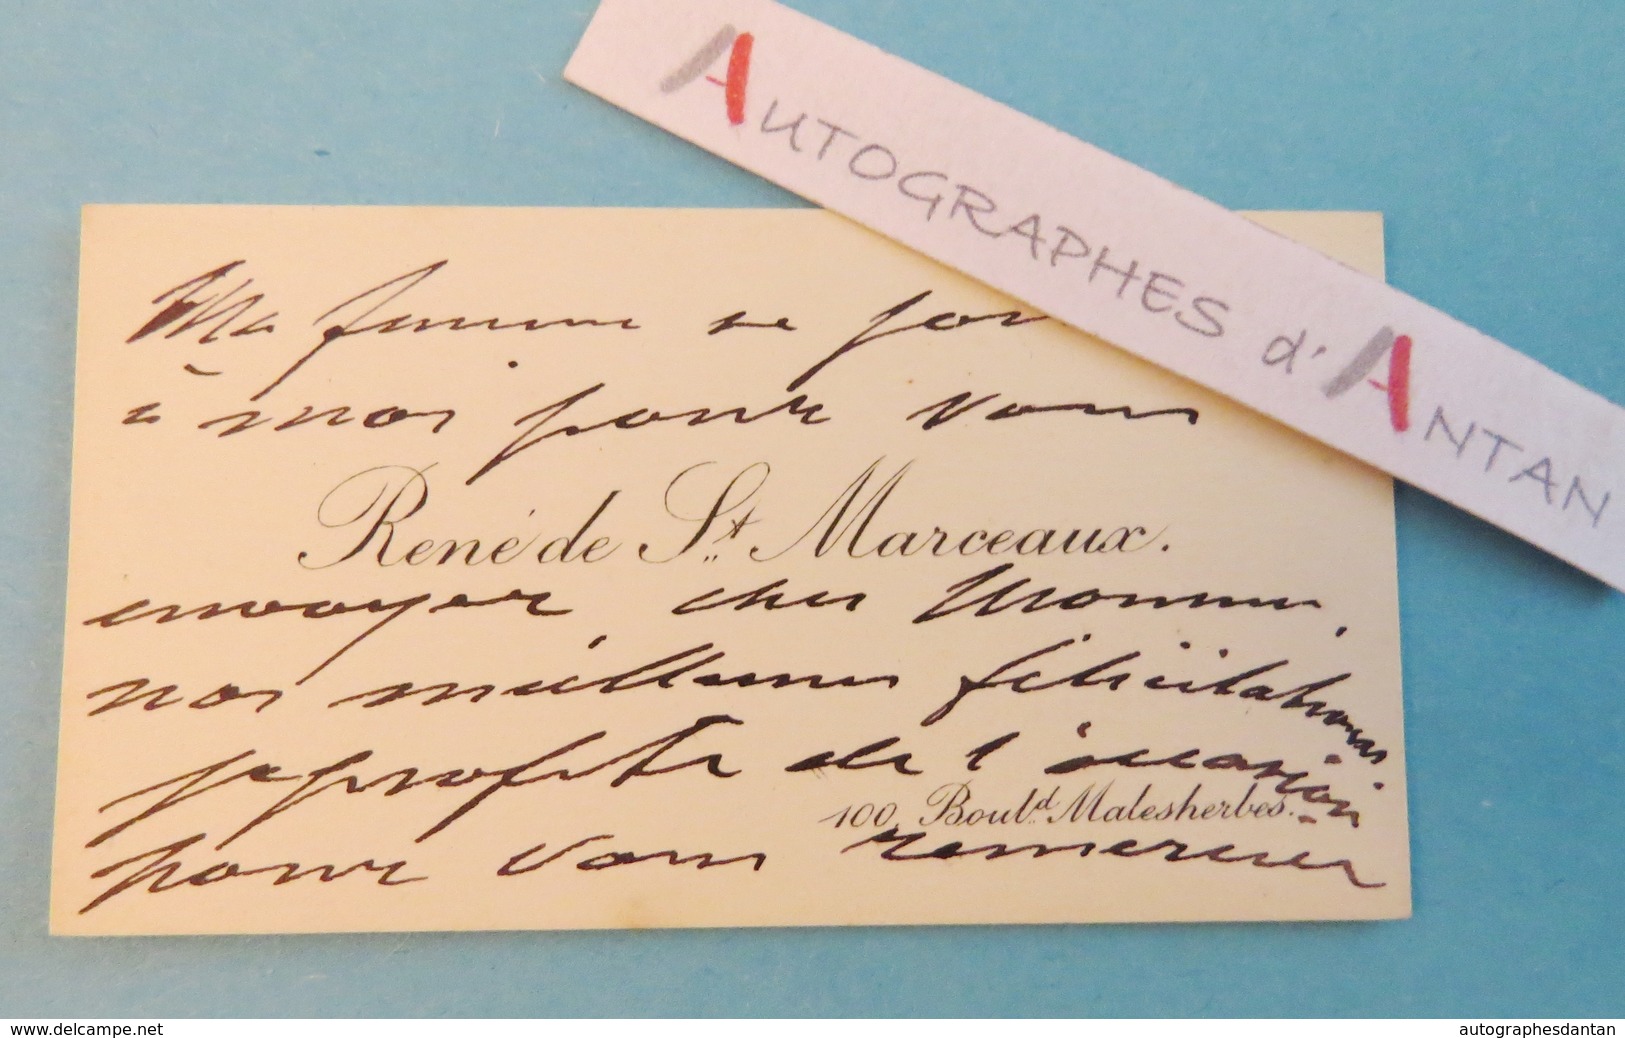 AUTOGRAPHES d'ANTAN
Ma femme se join
à moi pour vous
René de St Marceaux.
envoyer cher Monsieur,
nos meilleures félicitations.
je profite de l'occasion
100, Boul.d Malesherbes.
pour vous remercier
www.delcampe.net
autographesdantan